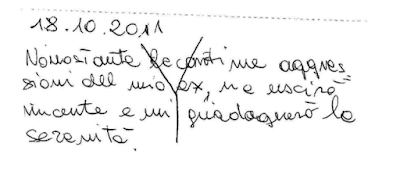 18.10.2011
Nonostante le continue aggres=
sioni del mio ex, ne uscirò
vincente e mi guadagnerò la
serenità.